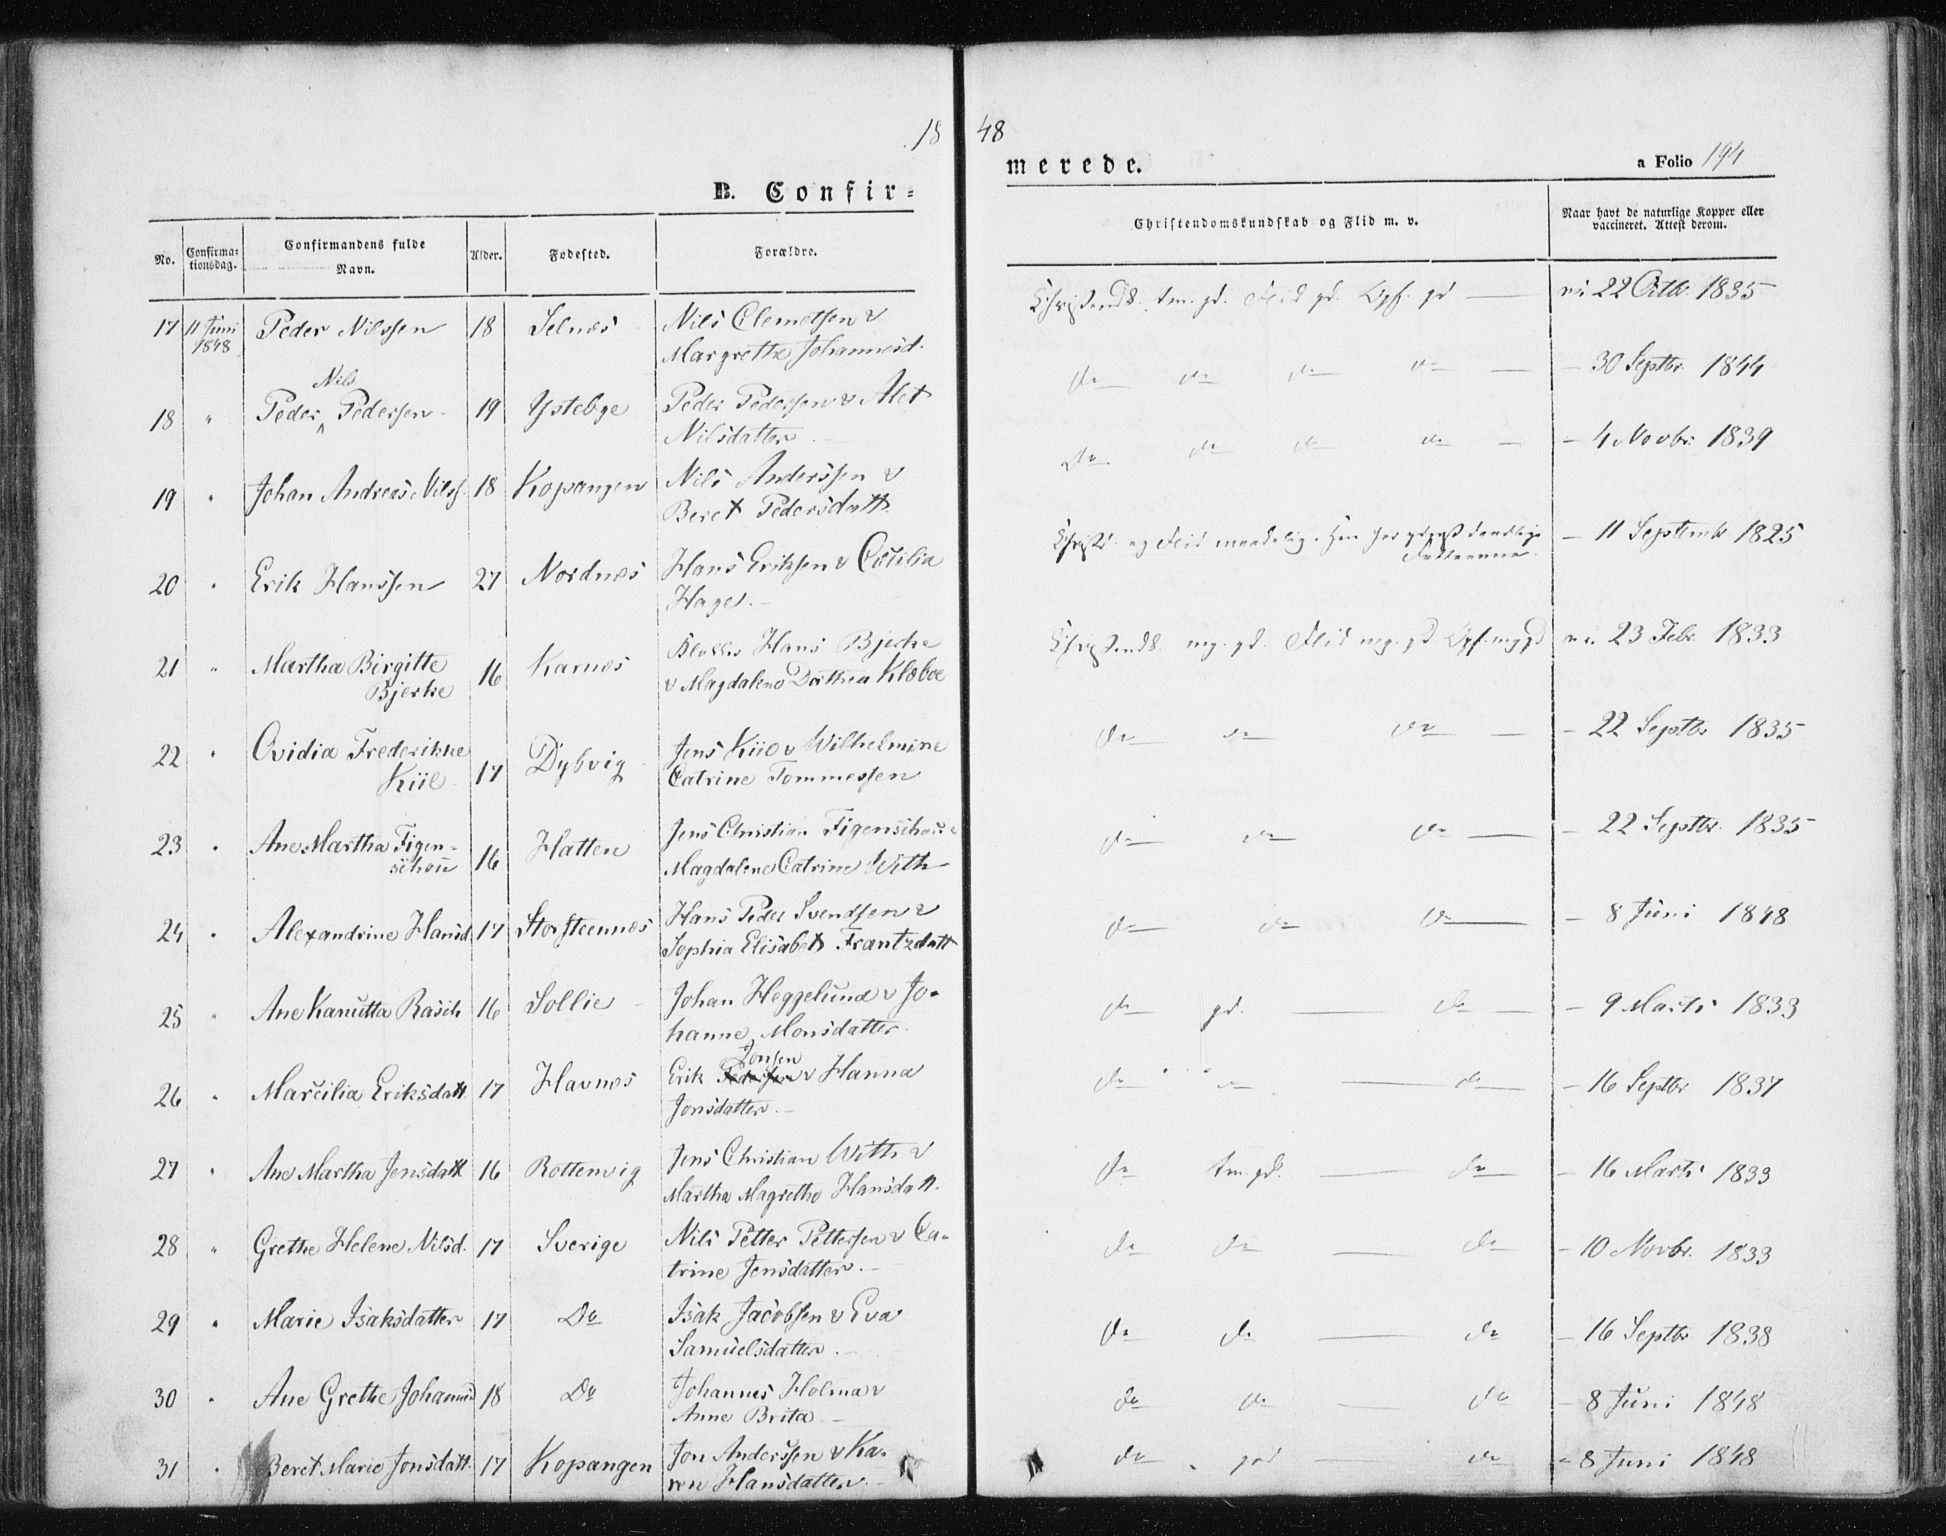 18 48
B. Confir=
merede.
a Folio 194
No.
Confirma=
tionsdag.
Confirmandens fulde
Navn.
Alder.
Fødested.
Forældre.
Christendomskundskab og Flid m. v.
Naar havt de naturlige Kopper eller
vaccineret. Attest derom.
17 11 Juni 1848 Peder Nilssen 18 Selnæs Nils Clemetsen &
Margrethe Johannesd.
Christends. tm. gd. Flid gd. Opf. gd — 22 Octbr. 1835
18 " Peder Nils Pedersen 19 Ystebye Peder Pedersen & Alet
Nilsdatter.
do do do do — - 30 Septbr. 1844
19 " Johan Andreas Nilss. 18 Kopangen Nils Anderssen &
Beret Pedersdatt.
do do do do — - 4 Novbr. 1839
20 " Erik Hanssen 27 Nordnæs Hans Eriksen & Cæcilia
Hage.
Christd. og Flid maadelig. - 11 Septembr 1825
21 " Martha Birgitte
Bjerke 16 Karnæs Hans Bjerke
& Magdalene Dorthea Klæboe
Christends. mg. gd. Flid mg. gd Opf. mg gd 23 Febr. 1833
22 " Ovidia Frederikke
Kiil 17 Dybvig Jens Kiil & Wilhelmine
Catrine Tommessen
do do do — - 22 Septbr. 1835
23 " Ane Martha Figen-
schou 16 Hatten Jens Christian Figenschou &
Magdalene Catrine With
do do do — - 22 Septbr. 1835
24 " Alexandrine Hansd. 17 Storsteennæs Hans Peder Svendsen &
Sophia Elisabeth Frantzdatt
do do do — - 8 Juni 1848
25 " Ane Kanutta Rasch 16 Sollie Johan Heggelund & Jo-
hanne Monsdatter.
do gd. — do — - 9 Marts 1833
26 " Marcilia Eriksdatt. 17 Havnæs Erik Pedersen Jonsen & Hanna
Jonsdatter.
do do — do - 16 Septbr 1837
27 " Ane Martha Jensdatt 16 Rottenvig Jens Christian With &
Martha Magrethe Hansdatt.
do tm. gd. — do - 16 Marts 1833
28 " Grethe Helene Nilsd. 17 Sverige Nils Petter Pettersen & Ca-
trine Jensdatter.
do do — do - 10 Novbr. 1833
29 " Marie Isaksdatter 17 Do Isak Jacobsen & Eva
Samuelsdatter.
do do — do - 16 Septbr 1838
30 " Ane Grethe Johannesd 18 Do Johannes Holma &
Anne Brita
do do — do - 8 Juni 1848
31 " Beret Marie Jonsdatt. 17 Kopangen Jon Anderssen & Ka-
ren Hansdatter.
do god — do - 8 Juni 1848